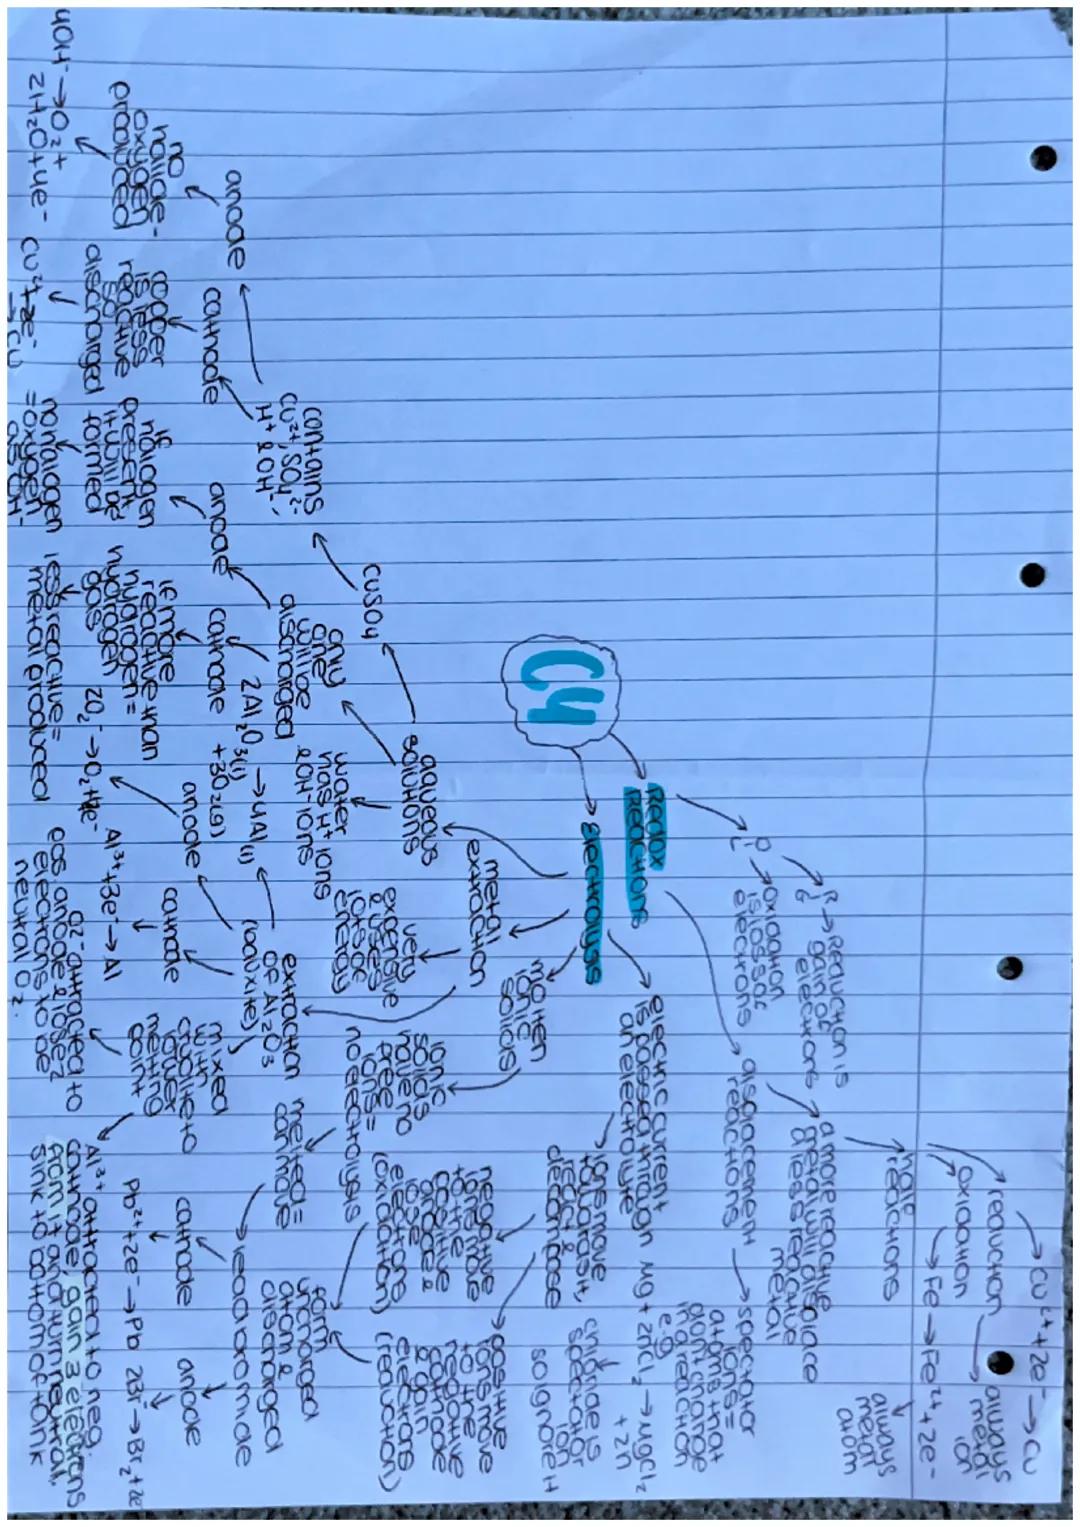 C4
Redox
Reactions
O
I
L
R
I
G
→ Reduction is
gain of
electrons
→ oxidation
is loss of
electrons
displacement
reactions
a more reactive
metal will displace
a less reactive
metal
half
reactions
reduction
→ Cu²⁺ + 2e⁻ → Cu
always
metal
ion
oxidation
→ Fe → Fe²⁺ + 2e⁻
always
metal
atom
→ spectator
ions =
atoms that
don't change
in a reaction
e.g
Mg + ZnCl₂ → MgCl₂
+ Zn
chloride is
spectator
so ignore it
Electrolysis
electric current
is passed through
an electrolyte
ions move
towards it,
react &
decompose
negative
ions move
to the
positive
anode &
lose
electrons
(oxidation)
positive
ions move
to the
negative
cathode
& gain
electrons
(reduction)
form
uncharged
atom &
discharged
molten
ionic
solids
ionic
solids
have no
free
ions =
no electrolysis
melted =
can move
→ lead bromide
cathode
Pb²⁺ + 2e⁻ → Pb
anode
2Br⁻ → Br₂ + 2e⁻
metal
extraction
very
expensive
& uses
lots of
energy
extraction
of Al₂O₃
(bauxite)
2Al₂O₃(l) → 4Al(l)
+ 3O₂(g)
anode
2O₂⁻ → O₂ + 4e⁻
cathode
Al³⁺ + 3e⁻ → Al
mixed
with
cryolite to
lower
melting
point
O²⁻ attracted to
pos anode & loses 2
electrons to be
neutral O₂.
Al³⁺ attracted to neg.
cathode, gain 3 electrons
from it and turn neutral.
sink to bottom of tank
aqueous
solutions
water
has H⁺ ions
& OH⁻ ions
only
one
will be
discharged
anode
if
halogen
present,
it will be
formed
no halogen
= oxygen
as OH⁻
cathode
if more
reactive than
hydrogen =
hydrogen
gas
less reactive =
metal produced
CuSO₄
contains
Cu²⁺, SO₄²⁻,
H⁺ & OH⁻
anode
no
halide -
oxygen
produced
4OH⁻ → O₂ +
2H₂O + 4e⁻
cathode
copper
is less
reactive
so
discharged
Cu²⁺ + 2e⁻
→ Cu